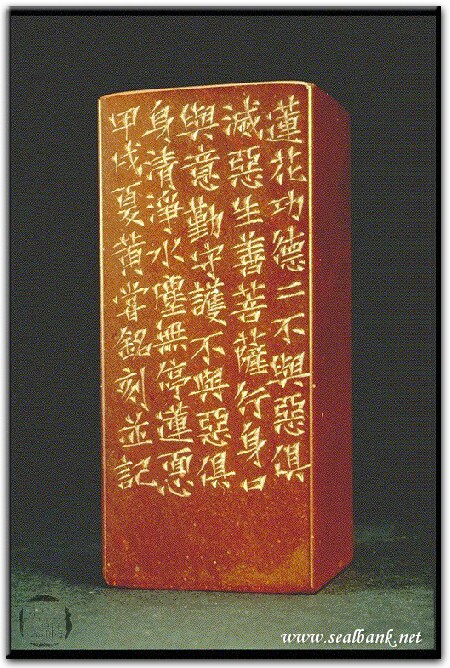 蓮花功德二不與惡俱
滅惡生善菩薩行身口
與意勤守護不與惡俱
身清淨水塵無停蓮惠
甲戌夏黃嘗銘刻並記
www.sealbank.net